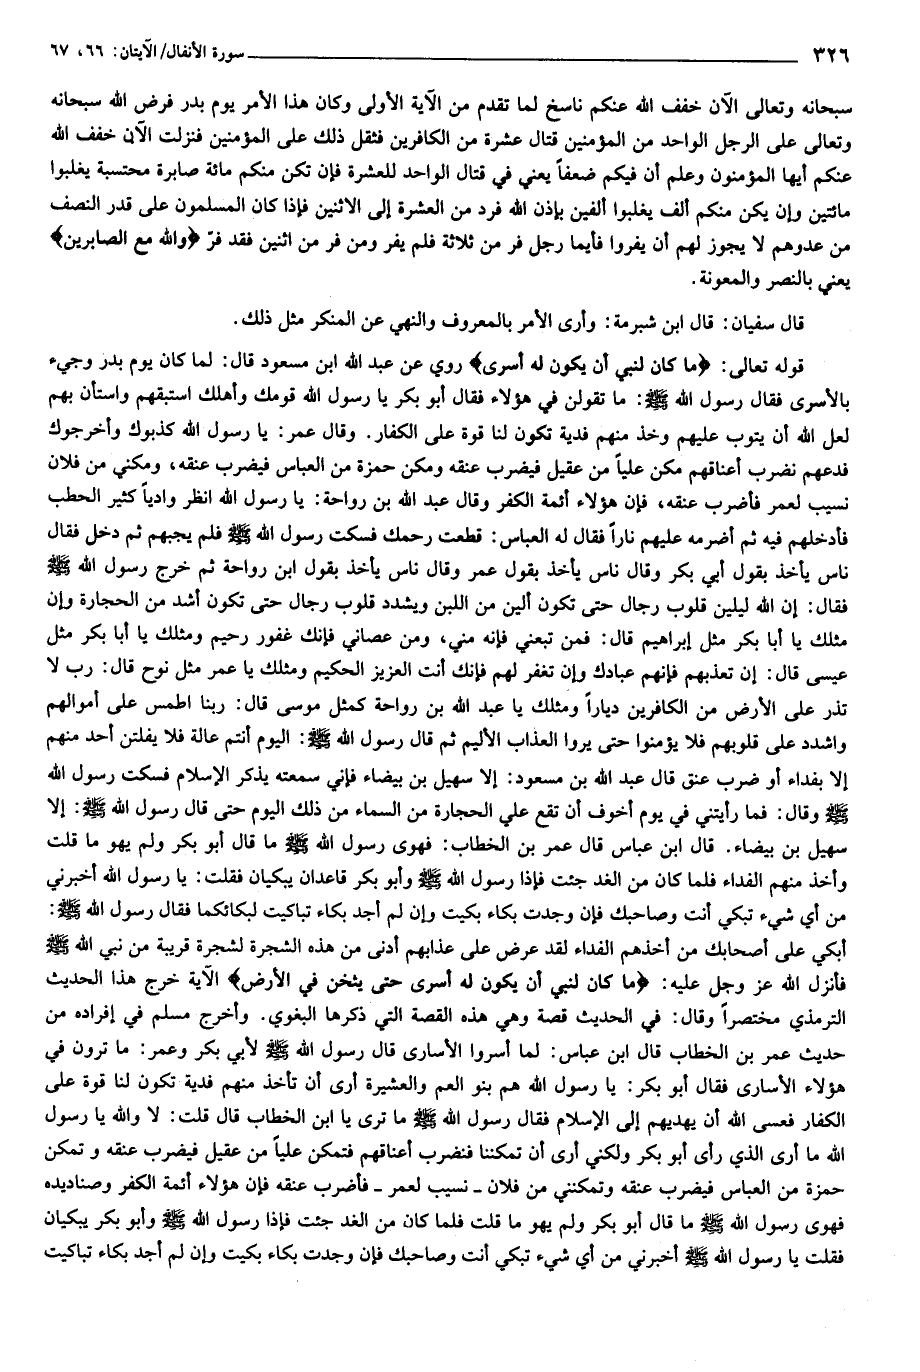 ٣٢٦ سورة الأنفال/ الآيتان: ٦٦، ٦٧
سبحانه وتعالى الآن خفف الله عنكم ناسخ لما تقدم من الآية الأولى وكان هذا الأمر يوم بدر فرض الله سبحانه
وتعالى على الرجل الواحد من المؤمنين قتال عشرة من الكافرين فثقل ذلك على المؤمنين فنزلت الآن خفف الله
عنكم أيها المؤمنون وعلم أن فيكم ضعفاً يعني في قتال الواحد للعشرة فإن تكن منكم مائة صابرة محتسبة يغلبوا
مائتين وإن يكن منكم ألف يغلبوا ألفين بإذن الله فرد من العشرة إلى الاثنين فإذا كان المسلمون على قدر النصف
من عدوهم لا يجوز لهم أن يفروا فأيما رجل فر من ثلاثة فلم يفر ومن فر من اثنين فقد فرّ ﴿والله مع الصابرين﴾
يعني بالنصر والمعونة.
قال سفيان: قال ابن شبرمة: وأرى الأمر بالمعروف والنهي عن المنكر مثل ذلك.
قوله تعالى: ﴿ما كان لنبي أن يكون له أسرى﴾ روي عن عبد الله ابن مسعود قال: لما كان يوم بدر وجيء
بالأسرى فقال رسول الله ﷺ: ما تقولن في هؤلاء فقال أبو بكر يا رسول الله قومك وأهلك استبقهم واستأن بهم
لعل الله أن يتوب عليهم وخذ منهم فدية تكون لنا قوة على الكفار. وقال عمر: يا رسول الله كذبوك وأخرجوك
فدعهم نضرب أعناقهم مكن علياً من عقيل فيضرب عنقه ومكن حمزة من العباس فيضرب عنقه، ومكني من فلان
نسيب لعمر فأضرب عنقه، فإن هؤلاء أئمة الكفر وقال عبد الله بن رواحة: يا رسول الله انظر وادياً كثير الحطب
فأدخلهم فيه ثم أضرمه عليهم ناراً فقال له العباس: قطعت رحمك فسكت رسول الله ﷺ فلم يجبهم ثم دخل فقال
ناس يأخذ بقول أبي بكر وقال ناس يأخذ بقول عمر وقال ناس يأخذ بقول ابن رواحة ثم خرج رسول الله ﷺ
فقال: إن الله ليلين قلوب رجال حتى تكون ألين من اللبن ويشدد قلوب رجال حتى تكون أشد من الحجارة وإن
مثلك يا أبا بكر مثل إبراهيم قال: فمن تبعني فإنه مني، ومن عصاني فإنك غفور رحيم ومثلك يا أبا بكر مثل
عيسى قال: إن تعذبهم فإنهم عبادك وإن تغفر لهم فإنك أنت العزيز الحكيم ومثلك يا عمر مثل نوح قال: رب لا
تذر على الأرض من الكافرين دياراً ومثلك يا عبد الله بن رواحة كمثل موسى قال: ربنا اطمس على أموالهم
واشدد على قلوبهم فلا يؤمنوا حتى يروا العذاب الأليم ثم قال رسول الله ﷺ: اليوم أنتم عالة فلا يفلتن أحد منهم
إلا بفداء أو ضرب عنق قال عبد الله بن مسعود: إلا سهيل بن بيضاء فإني سمعته يذكر الإسلام فسكت رسول الله
ﷺ وقال: فما رأيتني في يوم أخوف أن تقع علي الحجارة من السماء من ذلك اليوم حتى قال رسول الله ﷺ: إلا
سهيل بن بيضاء. قال ابن عباس قال عمر بن الخطاب: فهوى رسول الله ﷺ ما قال أبو بكر ولم يهو ما قلت
وأخذ منهم الفداء فلما كان من الغد جئت فإذا رسول الله ﷺ وأبو بكر قاعدان يبكيان فقلت: يا رسول الله أخبرني
من أي شيء تبكي أنت وصاحبك فإن وجدت بكاء بكيت وإن لم أجد بكاء تباكيت لبكائكما فقال رسول الله ﷺ:
أبكي على أصحابك من أخذهم الفداء لقد عرض على عذابهم أدنى من هذه الشجرة لشجرة قريبة من نبي الله ﷺ
فأنزل الله عز وجل عليه: ﴿ما كان لنبي أن يكون له أسرى حتى يثخن في الأرض﴾ الآية خرج هذا الحديث
الترمذي مختصراً وقال: في الحديث قصة وهي هذه القصة التي ذكرها البغوي. وأخرج مسلم في إفراده من
حديث عمر بن الخطاب قال ابن عباس: لما أسروا الأسارى قال رسول الله ﷺ لأبي بكر وعمر: ما ترون في
هؤلاء الأسارى فقال أبو بكر: يا رسول الله هم بنو العم والعشيرة أرى أن تأخذ منهم فدية تكون لنا قوة على
الكفار فعسى الله أن يهديهم إلى الإسلام فقال رسول الله ﷺ ما ترى يا ابن الخطاب قال قلت: لا والله يا رسول
الله ما أرى الذي رأى أبو بكر ولكني أرى أن تمكننا فنضرب أعناقهم فتمكن علياً من عقيل فيضرب عنقه و تمكن
حمزة من العباس فيضرب عنقه وتمكنني من فلان ـ نسيب لعمر ـ فأضرب عنقه فإن هؤلاء أئمة الكفر وصناديده
فهوى رسول الله ﷺ ما قال أبو بكر ولم يهو ما قلت فلما كان من الغد جئت فإذا رسول الله ﷺ وأبو بكر يبكيان
فقلت يا رسول الله ﷺ أخبرني من أي شيء تبكي أنت وصاحبك فإن وجدت بكاء بكيت وإن لم أجد بكاء تباكيت